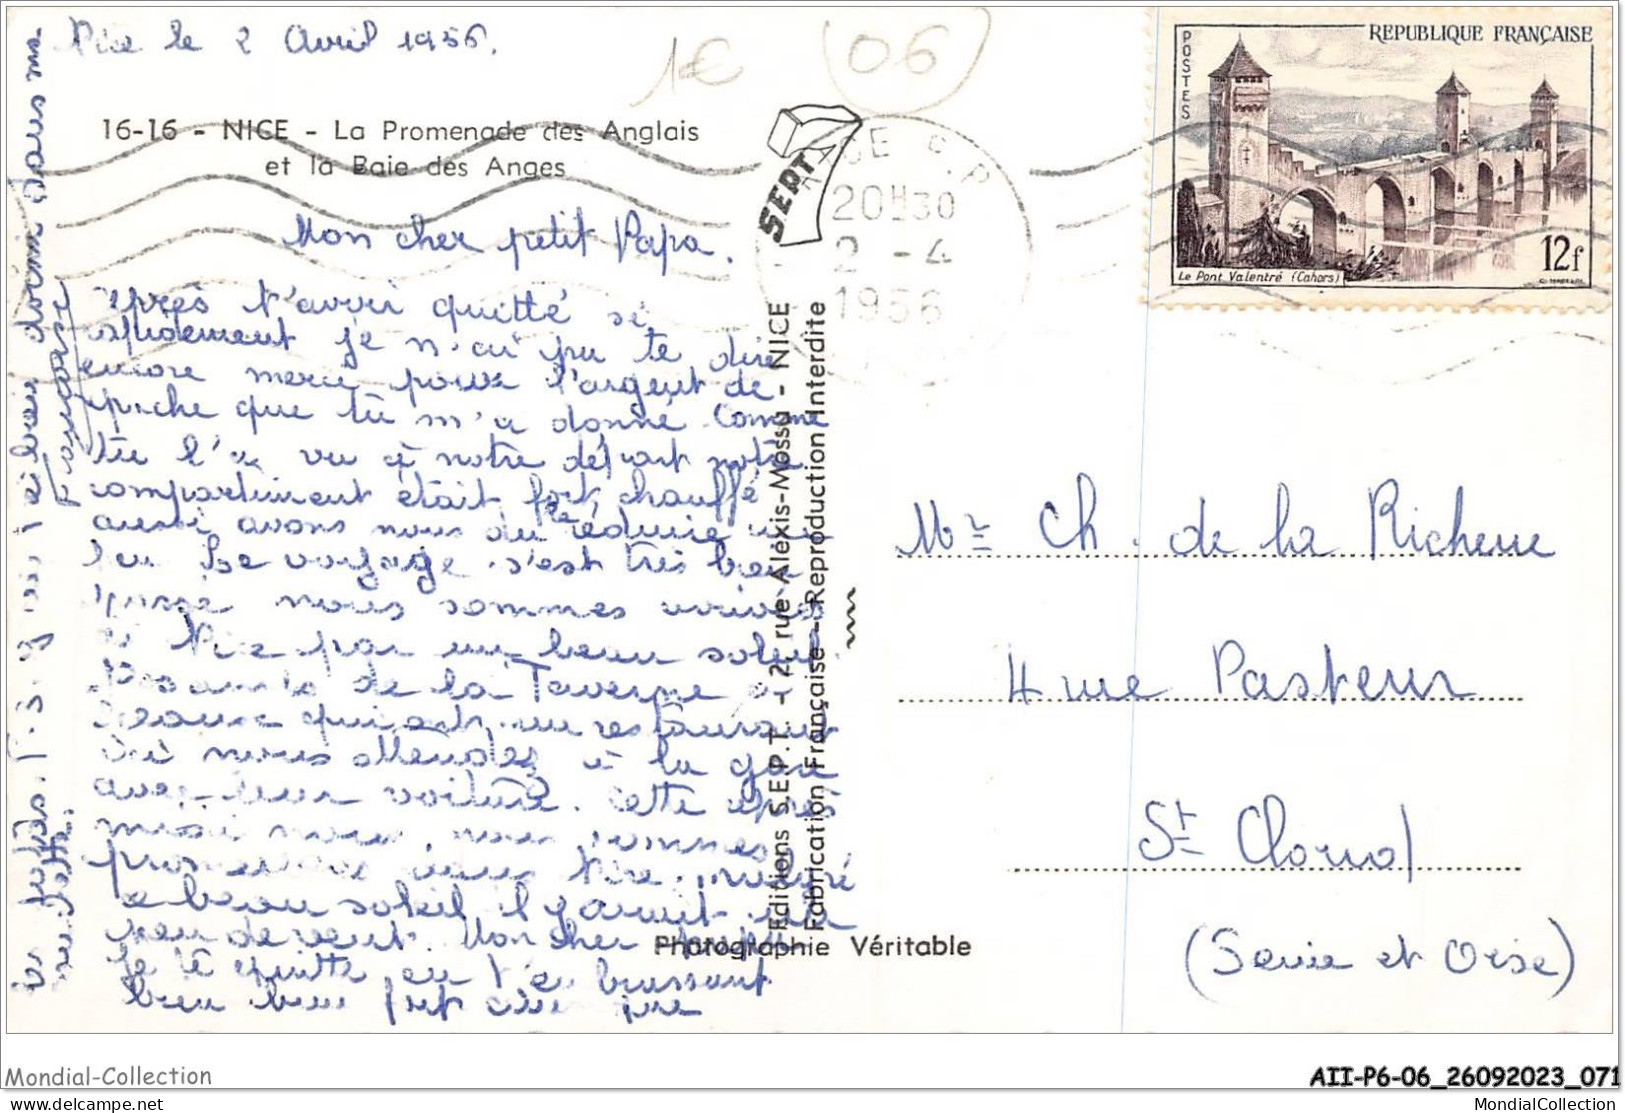 Nice le 2 Avril 1956.
1€
06
16-16 - NICE - La Promenade des Anglais
et la Baie des Anges
Mon cher petit Papa.
après t'avoir quitté si
rapidement je n'ai pu te dire
encore merci pour l'argent de
poche que tu m'a donné. Comme
tu l'as vu à notre départ notre
compartiment était fort chauffé
aussi avons nous du le réduire un
peu. Le voyage s'est très bien
passé nous sommes arrivés
à Nice par un beau soleil.
de la Taverne
qui ont un restaurant
nous attendes à la gare
avec leur voiture. Cette après
midi nous nous sommes
promenées dans Nice. malgré
ce beau soleil il y avait un
peu de vent. Mon cher papa
je te quitte en t'embrassant
bien bien fort ainsi que
les bébés.
ai bien dormi dans ma
Françoise
SEPT
NICE C.P
20H30
2 - 4
1956
REPUBLIQUE FRANÇAISE
POSTES
Le Pont Valentré (Cahors)
12f
Editions S.E.P.T. - 2, rue Alexis-Mossa - NICE
Fabrication Française - Reproduction Interdite
Photographie Véritable
Mr Ch. de la Richerie
4 rue Pasteur
St Cloud
(Seine et Oise)
Mondial-Collection
AII-P6-06_26092023_071
delcampe.net
MondialCollection